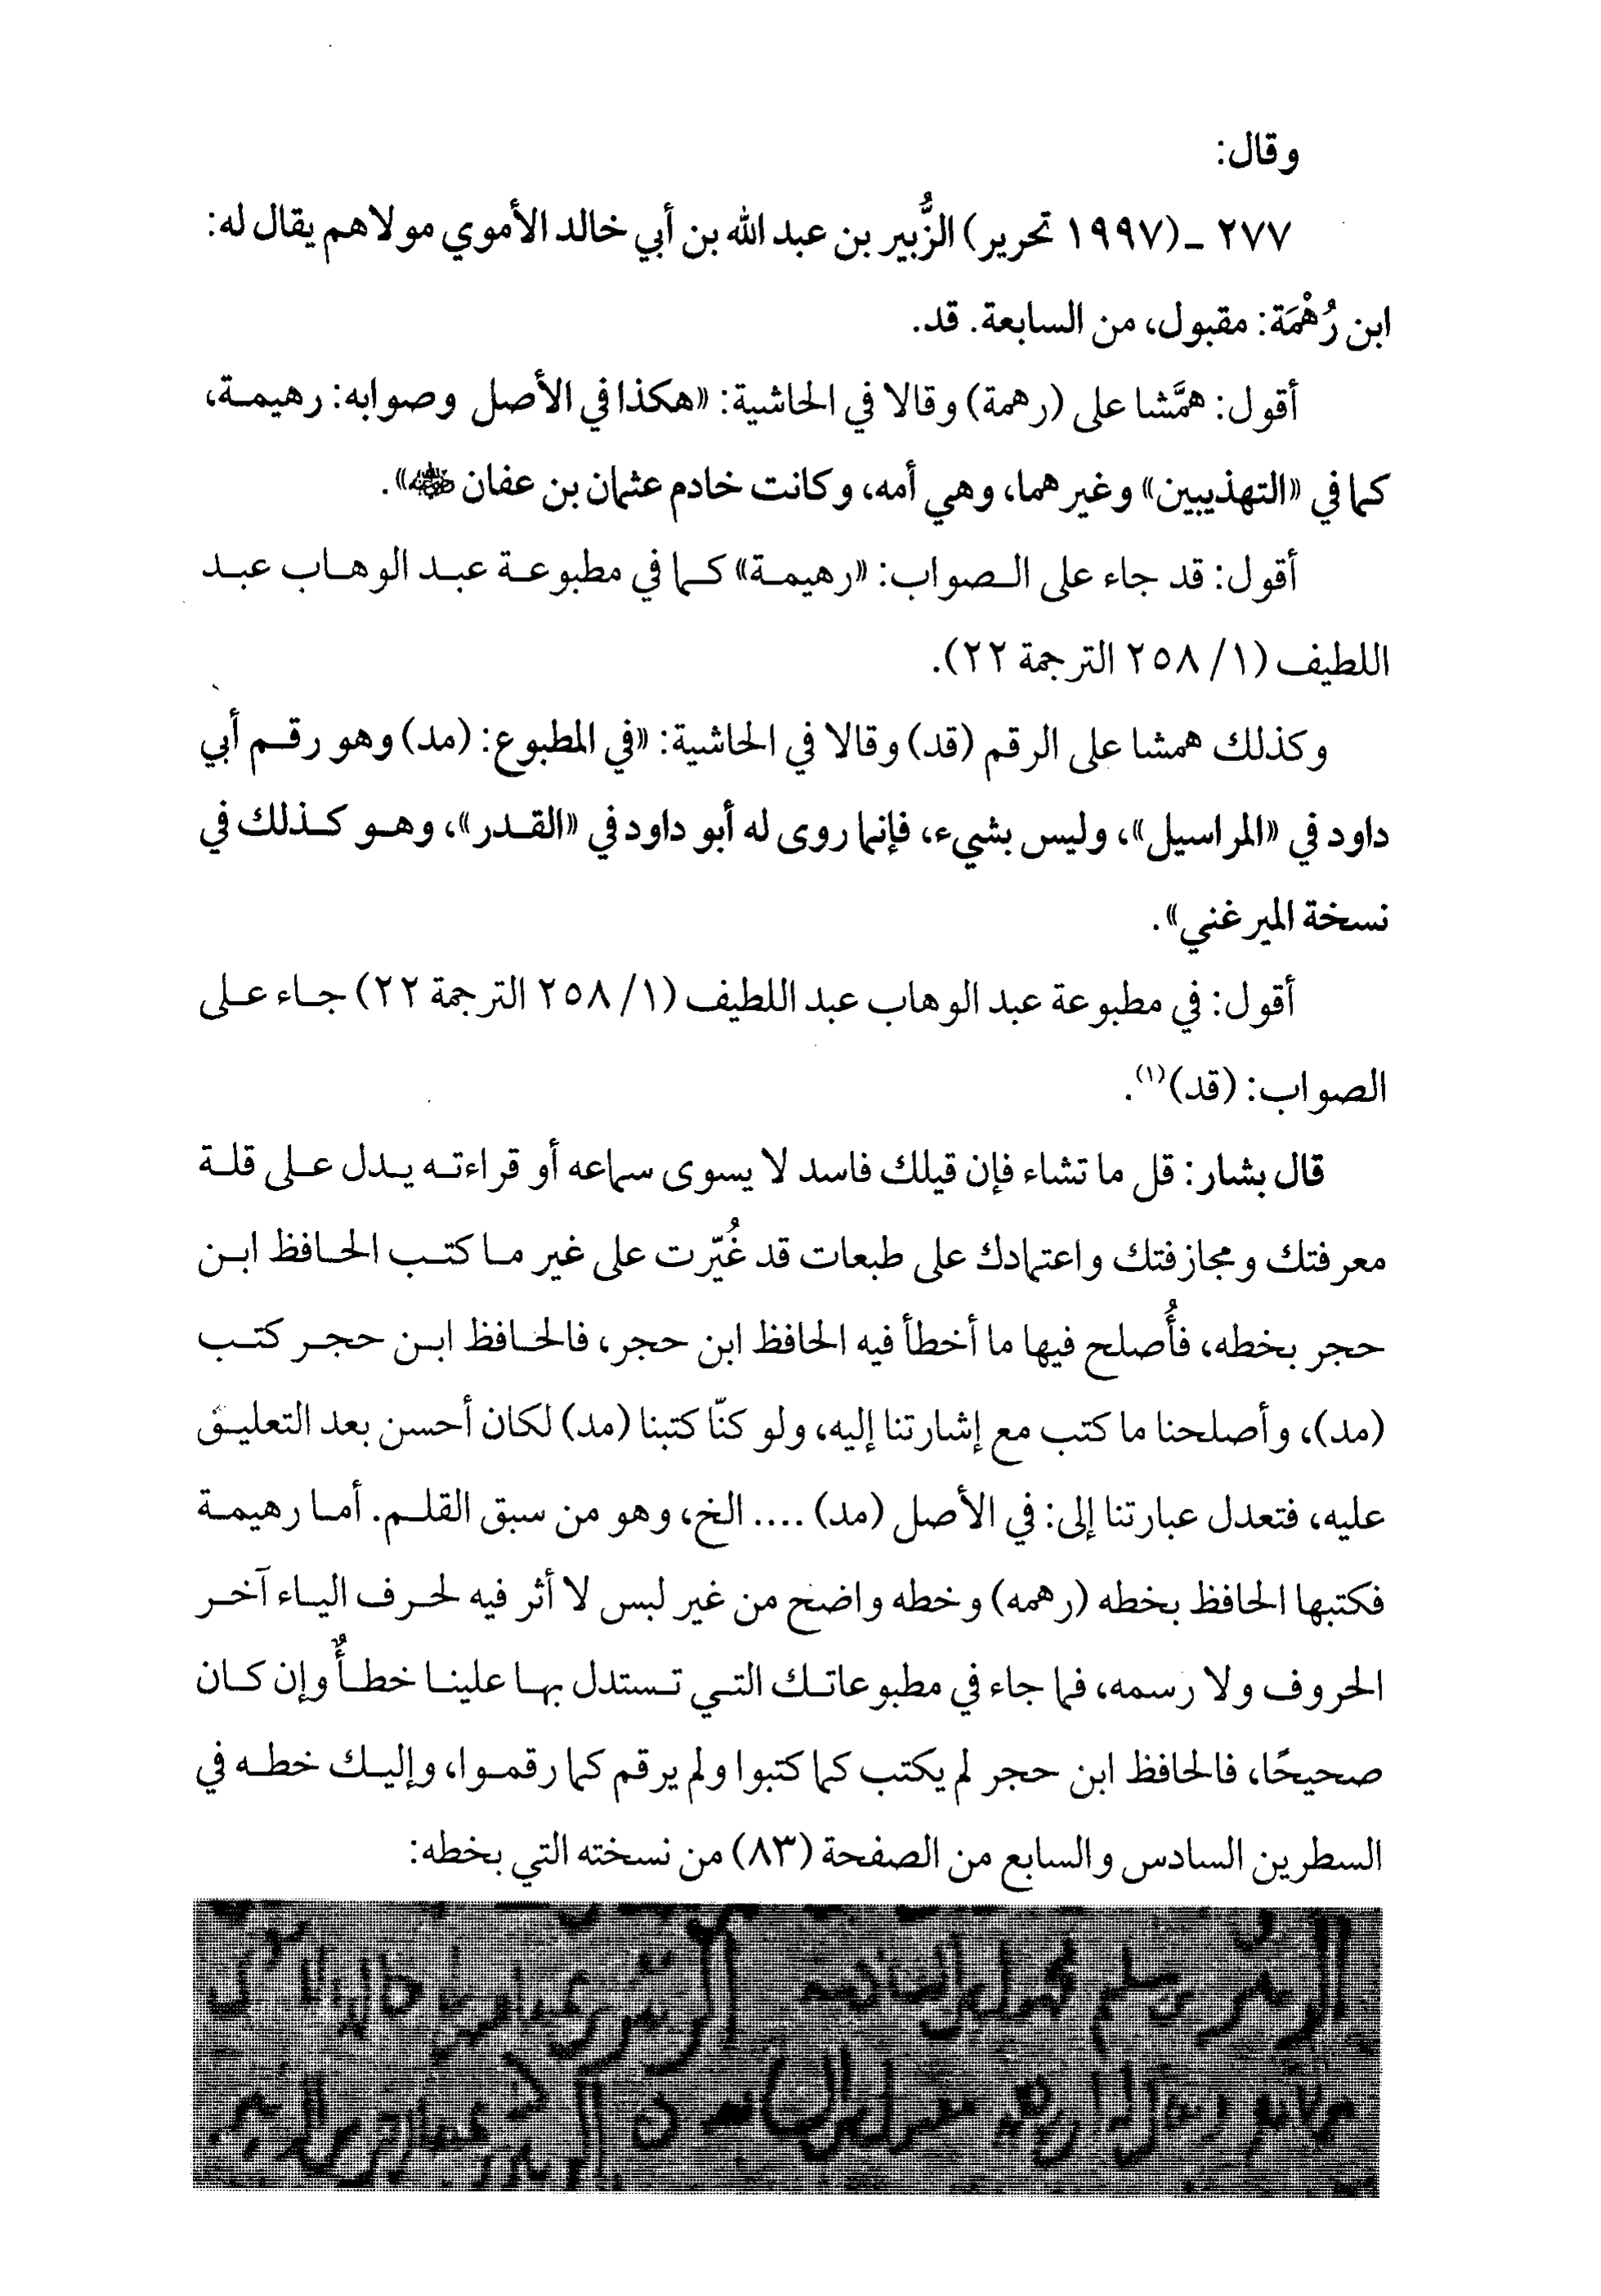 وقال:
٢٧٧ ـ (١٩٩٧ تحرير) الزُّبير بن عبد الله بن أبي خالد الأموي مولاهم يقال له:
ابن رُهْمَة: مقبول، من السابعة. قد.
أقول: همَّشا على (رهمة) وقالا في الحاشية: «هكذا في الأصل وصوابه: رهيمة،
كما في «التهذيبين» وغيرهما، وهي أمه، وكانت خادم عثمان بن عفان ﵁».
أقول: قد جاء على الصواب: «رهيمة» كما في مطبوعة عبد الوهاب عبد
اللطيف (١/ ٢٥٨ الترجمة ٢٢).
وكذلك همشا على الرقم (قد) وقالا في الحاشية: «في المطبوع: (مد) وهو رقم أبي
داود في «المراسيل»، وليس بشيء، فإنما روى له أبو داود في «القدر»، وهو كذلك في
نسخة الميرغني».
أقول: في مطبوعة عبد الوهاب عبد اللطيف (١/ ٢٥٨ الترجمة ٢٢) جاء على
الصواب: (قد)(١).
قال بشار: قل ما تشاء فإن قيلك فاسد لا يسوى سماعه أو قراءته يدل على قلة
معرفتك ومجازفتك واعتمادك على طبعات قد غُيّرت على غير ما كتب الحافظ ابن
حجر بخطه، فأُصلح فيها ما أخطأ فيه الحافظ ابن حجر، فالحافظ ابن حجر كتب
(مد)، وأصلحنا ما كتب مع إشارتنا إليه، ولو كنّا كتبنا (مد) لكان أحسن بعد التعليق
عليه، فتعدل عبارتنا إلى: في الأصل (مد) .... الخ، وهو من سبق القلم. أما رهيمة
فكتبها الحافظ بخطه (رهمه) وخطه واضح من غير لبس لا أثر فيه لحرف الياء آخر
الحروف ولا رسمه، فما جاء في مطبوعاتك التي تستدل بها علينا خطأٌ وإن كان
صحيحًا، فالحافظ ابن حجر لم يكتب كما كتبوا ولم يرقم كما رقموا، وإليك خطه في
السطرين السادس والسابع من الصفحة (٨٣) من نسخته التي بخطه: